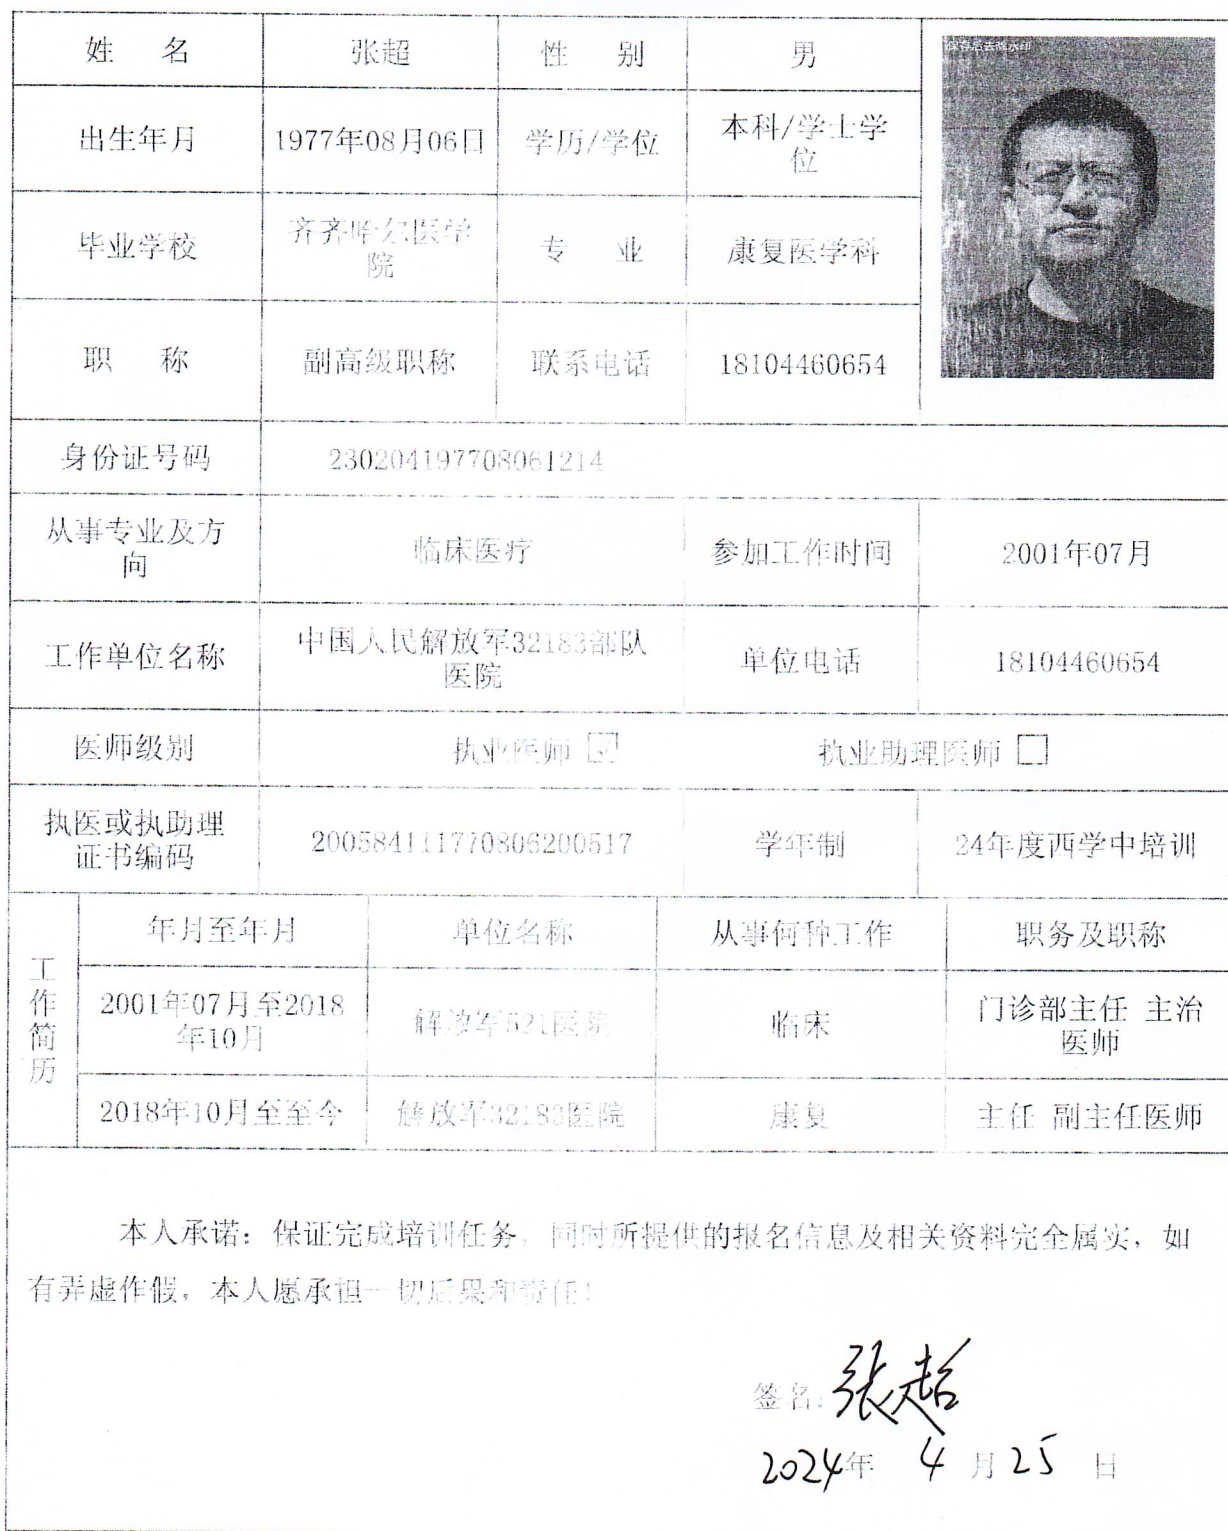 姓 名 张超 性 别 男
保存后去除水印
出生年月 1977年08月06日 学历/学位 本科/学士学
位
毕业学校 齐齐哈尔医学
院 专 业 康复医学科
职 称 副高级职称 联系电话 18104460654
身份证号码 230204197708061214
从事专业及方
向 临床医疗 参加工作时间 2001年07月
工作单位名称 中国人民解放军32183部队
医院 单位电话 18104460654
医师级别 执业医师 ☑ 执业助理医师 □
执医或执助理
证书编码 200584111770806200517 学年制 24年度西学中培训
工作简历
年月至年月 单位名称 从事何种工作 职务及职称
2001年07月至2018
年10月 解放军521医院 临床 门诊部主任 主治
医师
2018年10月至至今 解放军32183医院 康复 主任 副主任医师
本人承诺：保证完成培训任务，同时所提供的报名信息及相关资料完全属实，如
有弄虚作假，本人愿承担一切后果和责任！
签名：张超
2024年 4 月 25 日